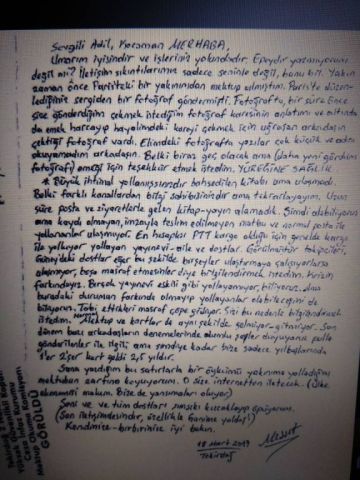 Sevgili Adil, Kocaman MERHABA,
Umarım iyisindir ve işleriniz yolundadır. Epeydir yazamıyorum
değil mi? İletişim sıkıntılarımız sadece seninle değil, bunu bil. Yakın
zaman önce Paris'teki bir yakınımdan mektup almıştım. Paris'te düzen-
lediğiniz sergiden bir fotoğraf göndermişti. Fotoğrafta, bir süre önce
size gönderdiğim çekmek istediğim fotoğraf karesinin anlatımı ve altında
da emek harcayıp hayalimdeki kareyi çekmek için uğraşan arkadaşın
çektiği fotoğraf vardı. Elimdeki fotoğrafta yazılar çok küçük ve adını
okuyamadım arkadaşın. Belki biraz geç olacak ama (daha yeni gördüm
fotoğrafı) emeği için teşekkür etmek istedim. YÜREĞİNE SAĞLIK
* Büyük ihtimal yollamışsınızdır bahsedilen kitabı ama ulaşmadı.
Belki farklı kanallardan bilgi sahibisinizdir ama tekrarlayayım. Uzun
süre posta ve ziyaretlerle gelen kitap-yayın alamadık. Şimdi alabiliyoruz
ama kaydı olmayan, imzayla teslim edilmeyen matbu ve normal posta ile
yollananlar ulaşmıyor. En hesaplısı PTT kargo olduğu için genelde kargo
ile yolluyor yollayan yayınevi-aile ve dostlar. Görülmüştür takipçileri,
Güney'deki dostlar eğer bu şekilde birşeyler ulaştırmaya çalışıyorlarsa
ulaşmıyor, boşa masraf etmesinler diye bilgilendirmek istedim. Birkın
farkındayız. Birçok yayınevi eskisi gibi yollayamıyor, biliyoruz. Ama
buradaki durumun farkında olmayıp yollayanlar olabileceğini de
biliyorum. Tabi ettikleri masraf çöpe gidiyor. Sizi bu nedenle bilgilendirmek
istedim. Mektup ve kartlar da aynı şekilde gelmiyor-gitmiyor. Son
dönem bazı arkadaşların denemelerinde olumlu şeyler duyuyoruz pulla
gönderilenler ile ilgili ama şimdiye kadar bize sadece yılbaşlarında
1'er 2'şer kart geldi 2,5 yıldır.
Sana yazdığım bu satırlarla bir öykümü yakınıma yolladığım
mektubun zarfına koyuyorum. O size internetten iletecek. (Ülke
ekonomisi malum. Bizde de yansımaları oluyor)
Seni ve ve tüm dostları sımsıkı kucaklayıp öpüyorum.
(Son iletişimdesindir, özellikle Ganime yoldaş!)
Kendinize-birbirinize iyi bakın.
18 Mart 2019
Tekirdağ
Mesut
Tekirdağ
Yüksek Güvenlikli
Ceza İnfaz Kurumu
Mektup Okuma Komisyonu
GÖRÜLDÜ